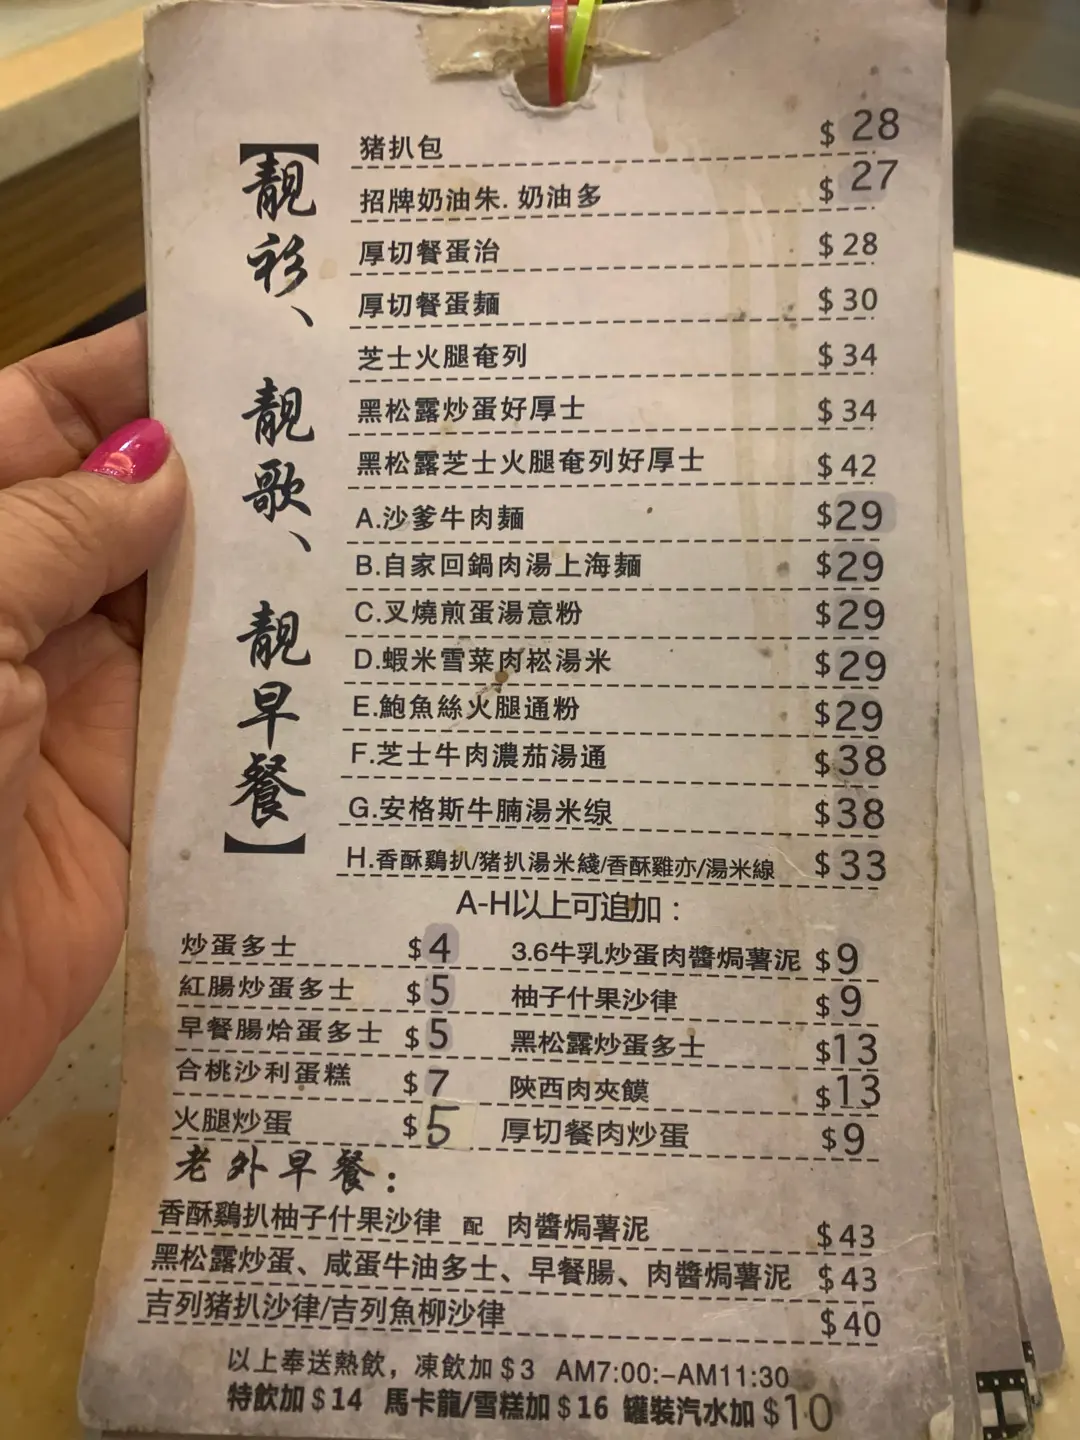 【靚衫、靚歌、靚早餐】
猪扒包 $28
招牌奶油朱.奶油多 $27
厚切餐蛋治 $28
厚切餐蛋麵 $30
芝士火腿奄列 $34
黑松露炒蛋好厚士 $34
黑松露芝士火腿奄列好厚士 $42
A.沙爹牛肉麵 $29
B.自家回鍋肉湯上海麵 $29
C.叉燒煎蛋湯意粉 $29
D.蝦米雪菜肉崧湯米 $29
E.鮑魚絲火腿通粉 $29
F.芝士牛肉濃茄湯通 $38
G.安格斯牛腩湯米缐 $38
H.香酥鷄扒/猪扒湯米綫/香酥雞亦/湯米線 $33
A-H以上可追加：
炒蛋多士 $4 3.6牛乳炒蛋肉醬焗薯泥 $9
紅腸炒蛋多士 $5 柚子什果沙律 $9
早餐腸烚蛋多士 $5 黑松露炒蛋多士 $13
合桃沙利蛋糕 $7 陝西肉夾饃 $13
火腿炒蛋 $5 厚切餐肉炒蛋 $9
老外早餐：
香酥鷄扒柚子什果沙律 配 肉醬焗薯泥 $43
黑松露炒蛋、咸蛋牛油多士、早餐腸、肉醬焗薯泥 $43
吉列猪扒沙律/吉列魚柳沙律 $40
以上奉送熱飲，凍飲加$3 AM7:00:–AM11:30
特飲加$14 馬卡龍/雪糕加$16 罐裝汽水加$10